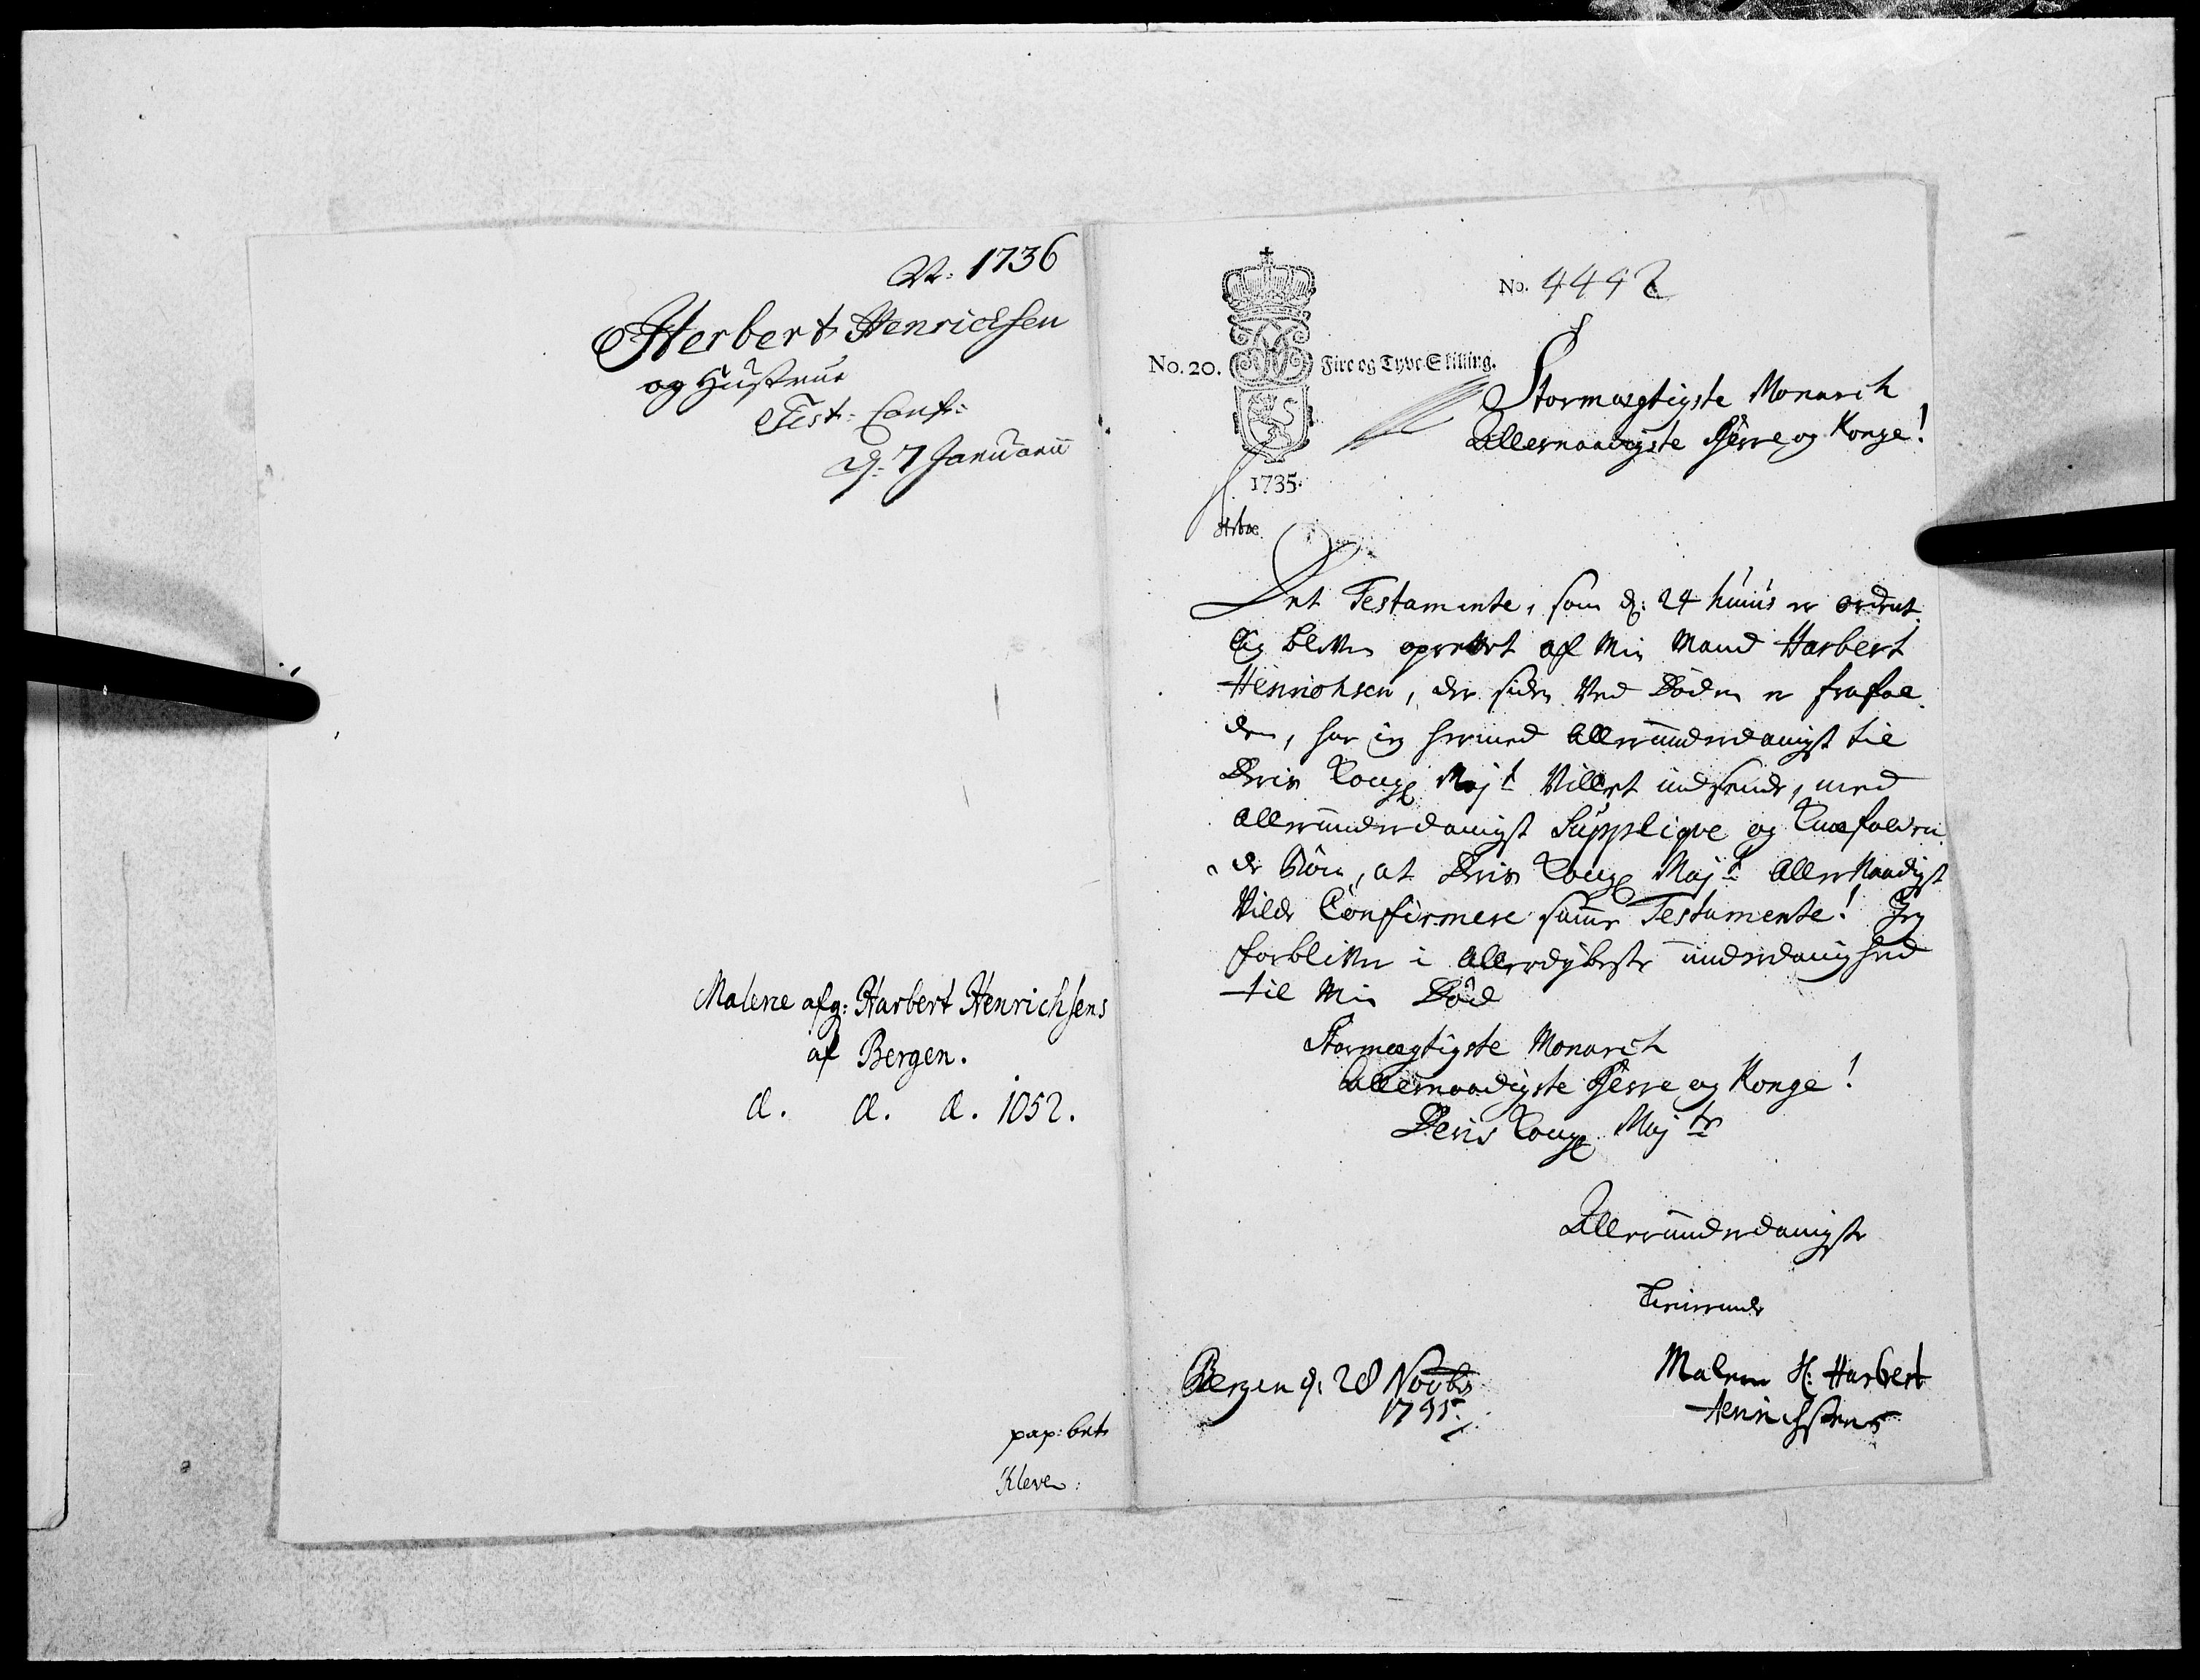 N. 1736
Herbert Henrichsen
og Hustrue
Test: Conf:
d: 7 Januarii
Malene afg: Harbert Henrichsens
af Bergen.
d. d. d. 1052.
pap: bet
Kleve:
No. 4442
No. 20. Fire og Tyve Skilling.
Stormægtigste Monarch
Allernaadigste Herre og Konge!
1735.
Det Testamente, som d: 24 huius er ordent¬
lig bleven oprettet af Min Mand Harbert
Henrichsen, der siden Ved Døden er frafal¬
den, har jeg hermed Allerunderdanigst til
Deris Kongl Majt Villet indsende, med
allerunderdanigst Supplique og Knæfalden¬
de Bøn, at Deris Kongl Majt AllerNaadigst
Vilde Confirmere samme Testamente! Jeg
forbliver i Allerdybeste underdanighed
til Min Død
Stormægtigste Monarch
Allernaadigste Herre og Konge!
Deris Kongl Majts
Allerunderdanigste
Tienerinde
Bergen d: 28 Novbr
1735.
Malene Sl: Harbert
Henrichsens